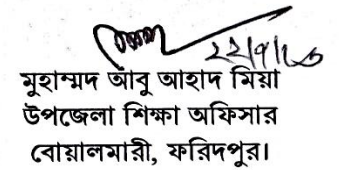 ২২/৭/২৩
মুহাম্মদ আবু আহাদ মিয়া
উপজেলা শিক্ষা অফিসার
বোয়ালমারী, ফরিদপুর।